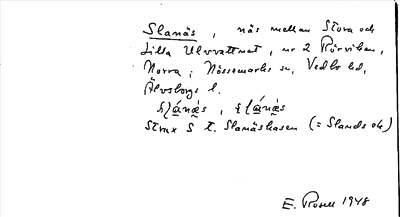 Slanäs, näs mellan Stora och
Lilla Ulvvattnet, nr 2 Rörviken,
Norra; Nössemarks sn, Vedbo hd,
Älvsborgs l.
Strax S t. Slanäshasen (= Slands ok)
E. Rosell 1948